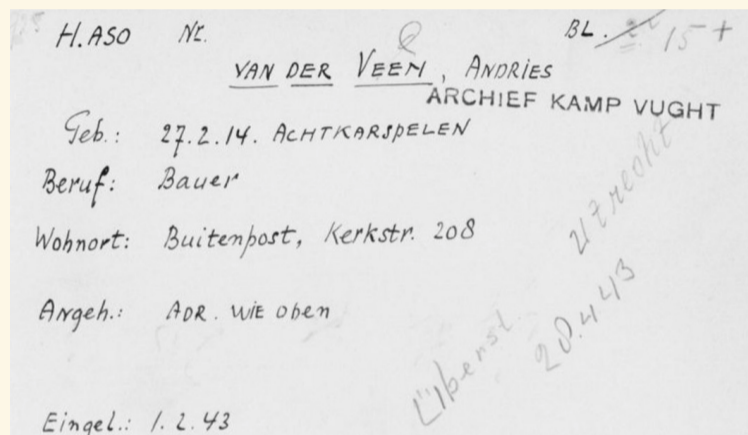 H.ASO Nr. BL. 15+
VAN DER VEEN, ANDRIES
ARCHIEF KAMP VUGHT
Geb.: 27.2.14. ACHTKARSPELEN
Beruf: Bauer
Wohnort: Buitenpost, Kerkstr. 208
Angeh.: ADR. WIE oben
Überst. Utrecht
28.4.43
Eingel.: 1.2.43